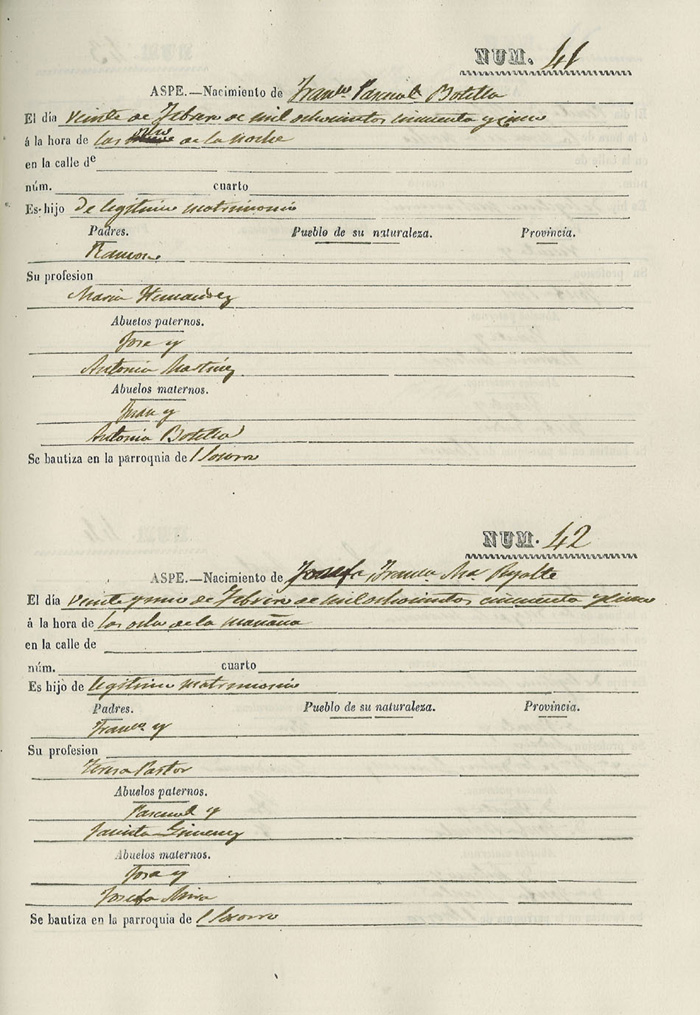 NUM. 41
ASPE.—Nacimiento de Franco Pascual Botella
El dia veinte de Febrero de mil ochocientos cincuenta y cinco
á la hora de las de la noche
en la calle de
núm. cuarto
Es hijo de legitimo matrimonio
Padres. Pueblo de su naturaleza. Provincia.
Ramon
Su profesion
Maria Hernandez
Abuelos paternos.
Jose y
Antonia Martinez
Abuelos maternos.
Juan y
Antonia Botella
Se bautiza en la parroquia de l Socorro
NUM. 42
ASPE.—Nacimiento de Josefa Franca
El dia veinte y uno de Febrero de mil ochocientos cincuenta y cinco
á la hora de las ocho de la mañana
en la calle de
núm. cuarto
Es hijo de legitimo matrimonio
Padres. Pueblo de su naturaleza. Provincia.
Franco y
Su profesion
Teresa Pastor
Abuelos paternos.
Pascual y
Jacinta Gimenez
Abuelos maternos.
Jose y
Josefa Mira
Se bautiza en la parroquia de l Socorro